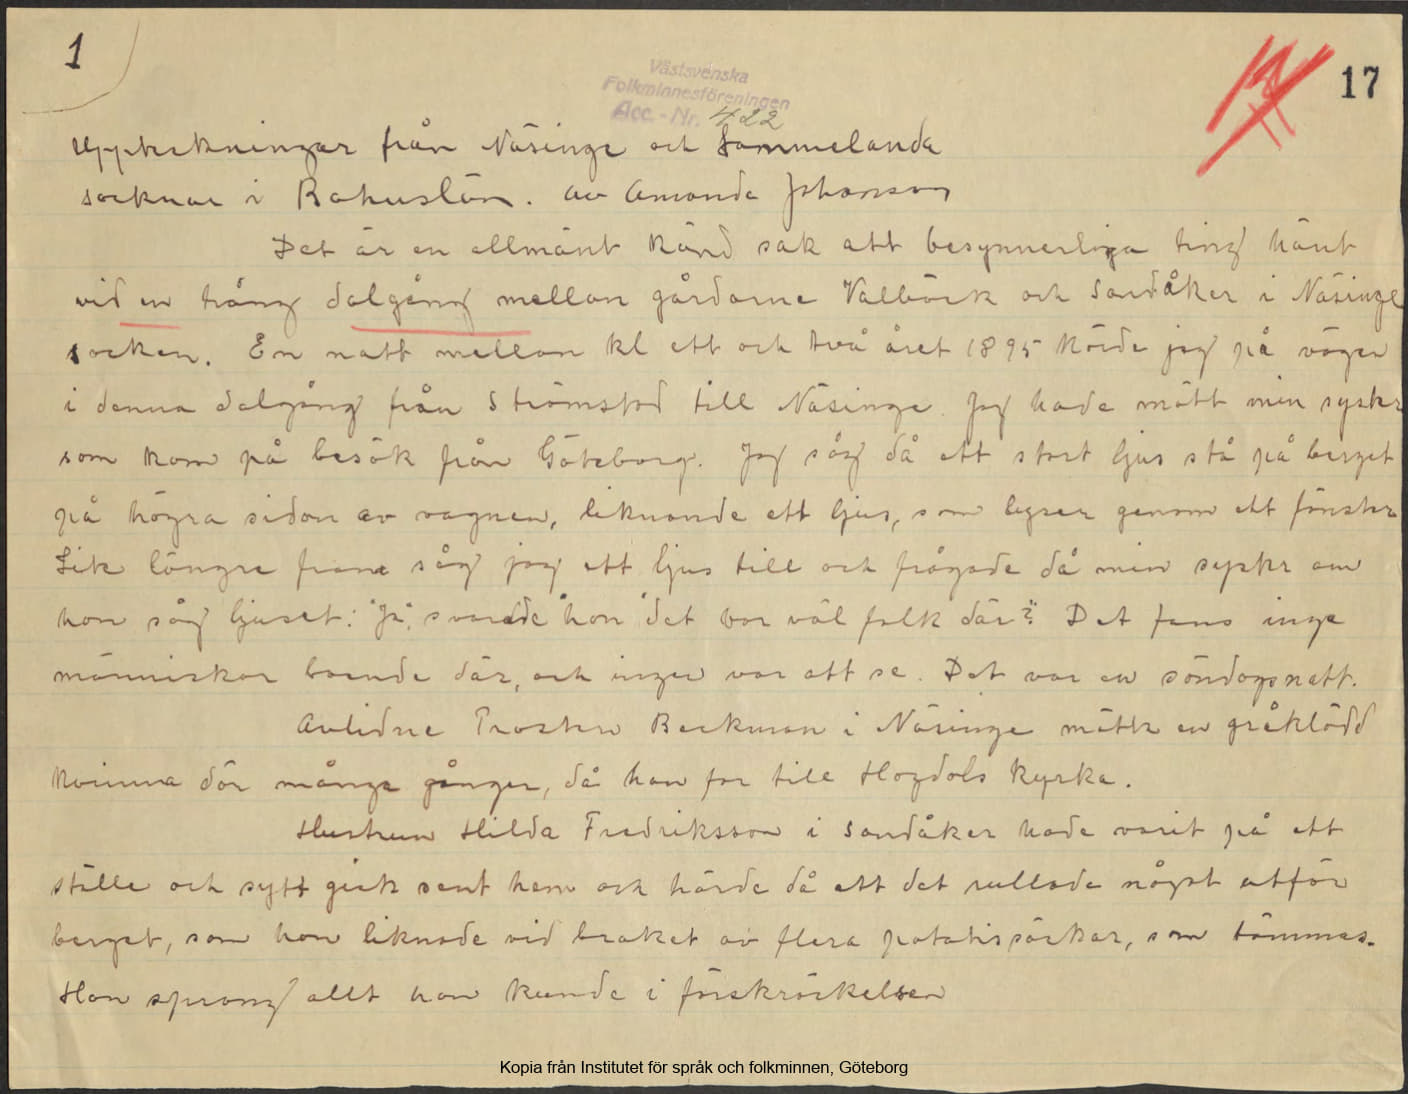 1
17
Västsvenska
Folkminnesföreningen
Acc.-Nr. 422
Uppteckningar från Näsinge och Sammelanda
socknar i Bohuslän. av Amanda Johanson
Det är en allmänt känd sak att besynnerliga ting hänt
vid en trång dalgång mellan gårdarne Valbäck och Sandåker i Näsinge
socken. En natt mellan kl ett och två året 1895 körde jag på vägen
i denna dalgång från Strömstad till Näsinge. Jag hade mött min syster
som kom på besök från Göteborg. Jag såg då ett stort ljus stå på berget
på högra sidan av vagnen, liknande ett ljus, som lyser genom ett fönster
Lite längre fram såg jag ett ljus till och frågade då min syster om
hon såg ljuset: "Ja", svarade hon "det bor väl folk där?" Det fans inga
människor boende där, och ingen var att se. Det var en söndagsnatt.
Avlidne Prosten Backman i Näsinge mötte en gråklädd
kvinna där många gånger, då han for till Hogdals kyrka.
Hustrun Hilda Fredriksson i Sandåker hade varit på ett
ställe och sytt gick sent hem och hörde då att det rullade något utför
berget, som hon liknade vid braket av flera potatissäckar, som tömmas.
Hon sprang allt hon kunde i förskräckelsen
Kopia från Institutet för språk och folkminnen, Göteborg